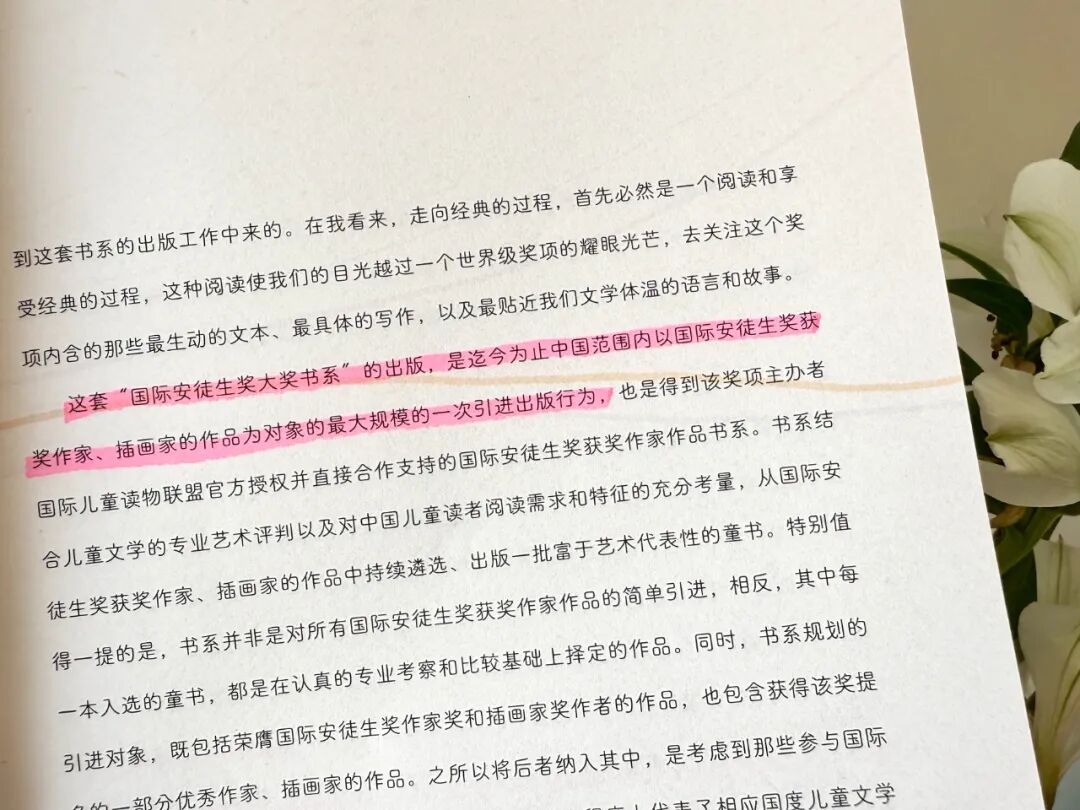 到这套书系的出版工作中来的。在我看来，走向经典的过程，首先必然是一个阅读和享
受经典的过程，这种阅读使我们的目光越过一个世界级奖项的耀眼光芒，去关注这个奖
项内含的那些最生动的文本、最具体的写作，以及最贴近我们文学体温的语言和故事。
这套“国际安徒生奖大奖书系”的出版，是迄今为止中国范围内以国际安徒生奖获
奖作家、插画家的作品为对象的最大规模的一次引进出版行为，也是得到该奖项主办者
国际儿童读物联盟官方授权并直接合作支持的国际安徒生奖获奖作家作品书系。书系结
合儿童文学的专业艺术评判以及对中国儿童读者阅读需求和特征的充分考量，从国际安
徒生奖获奖作家、插画家的作品中持续遴选、出版一批富于艺术代表性的童书。特别值
得一提的是，书系并非是对所有国际安徒生奖获奖作家作品的简单引进，相反，其中每
一本入选的童书，都是在认真的专业考察和比较基础上择定的作品。同时，书系规划的
引进对象，既包括荣膺国际安徒生奖作家奖和插画家奖作者的作品，也包含获得该奖提
名的一部分优秀作家、插画家的作品。之所以将后者纳入其中，是考虑到那些参与国际
代表了相应国度儿童文学